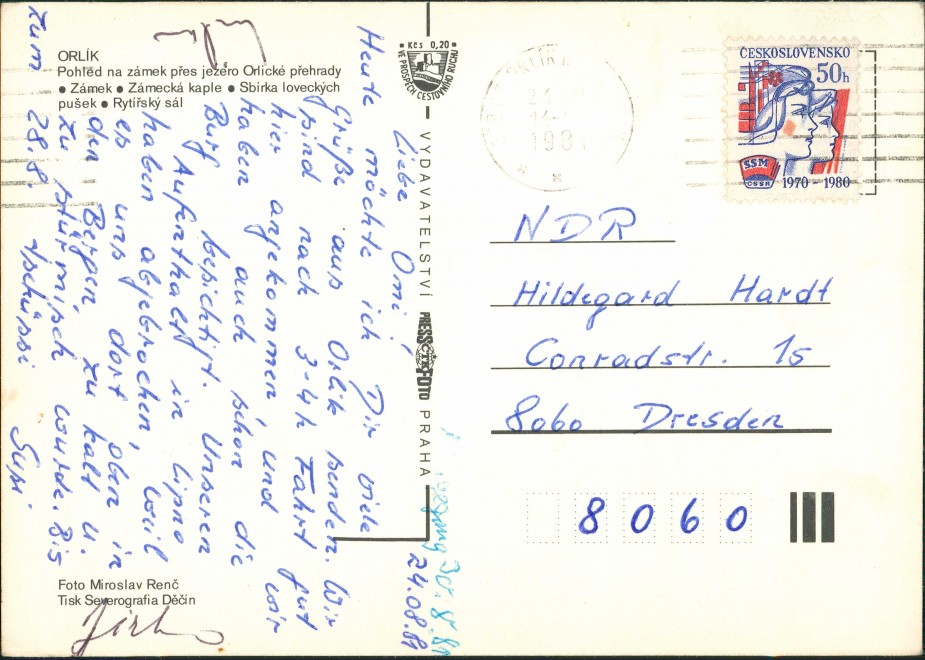 ORLÍK
Pohled na zámek přes jezero Orlické přehrady
● Zámek ● Zámecká kaple ● Sbírka loveckých
pušek ● Rytířský sál
Kčs 0,20
VE PROSPĚCH CESTOVNÍHO RUCHU
VYDAVATELSTVÍ PRESSFOTO PRAHA
ČTK
24.08.81
Liebe Omi,
Heute möchte ich Dir viele
Grüße aus Orlik senden. Wir
sind nach 3-4h Fahrt gut
hier angekommen und wir
haben auch schon die
Burg besichtigt. Unseren
Aufenthalt in Lipno
haben abgebrochen, weil
es uns dort oben in
den Bergen zu kalt u.
zu stürmisch wurde. Bis
zum 28.8 tschüssi
Susi.
30.8.81
Foto Miroslav Renč
Tisk Severografia Děčín
ORLÍK
198
ČESKOSLOVENSKO
50h
SSM
ČSSR
1970 - 1980
NDR
Hildegard Hardt
Conradstr. 15
8060 Dresden
8060